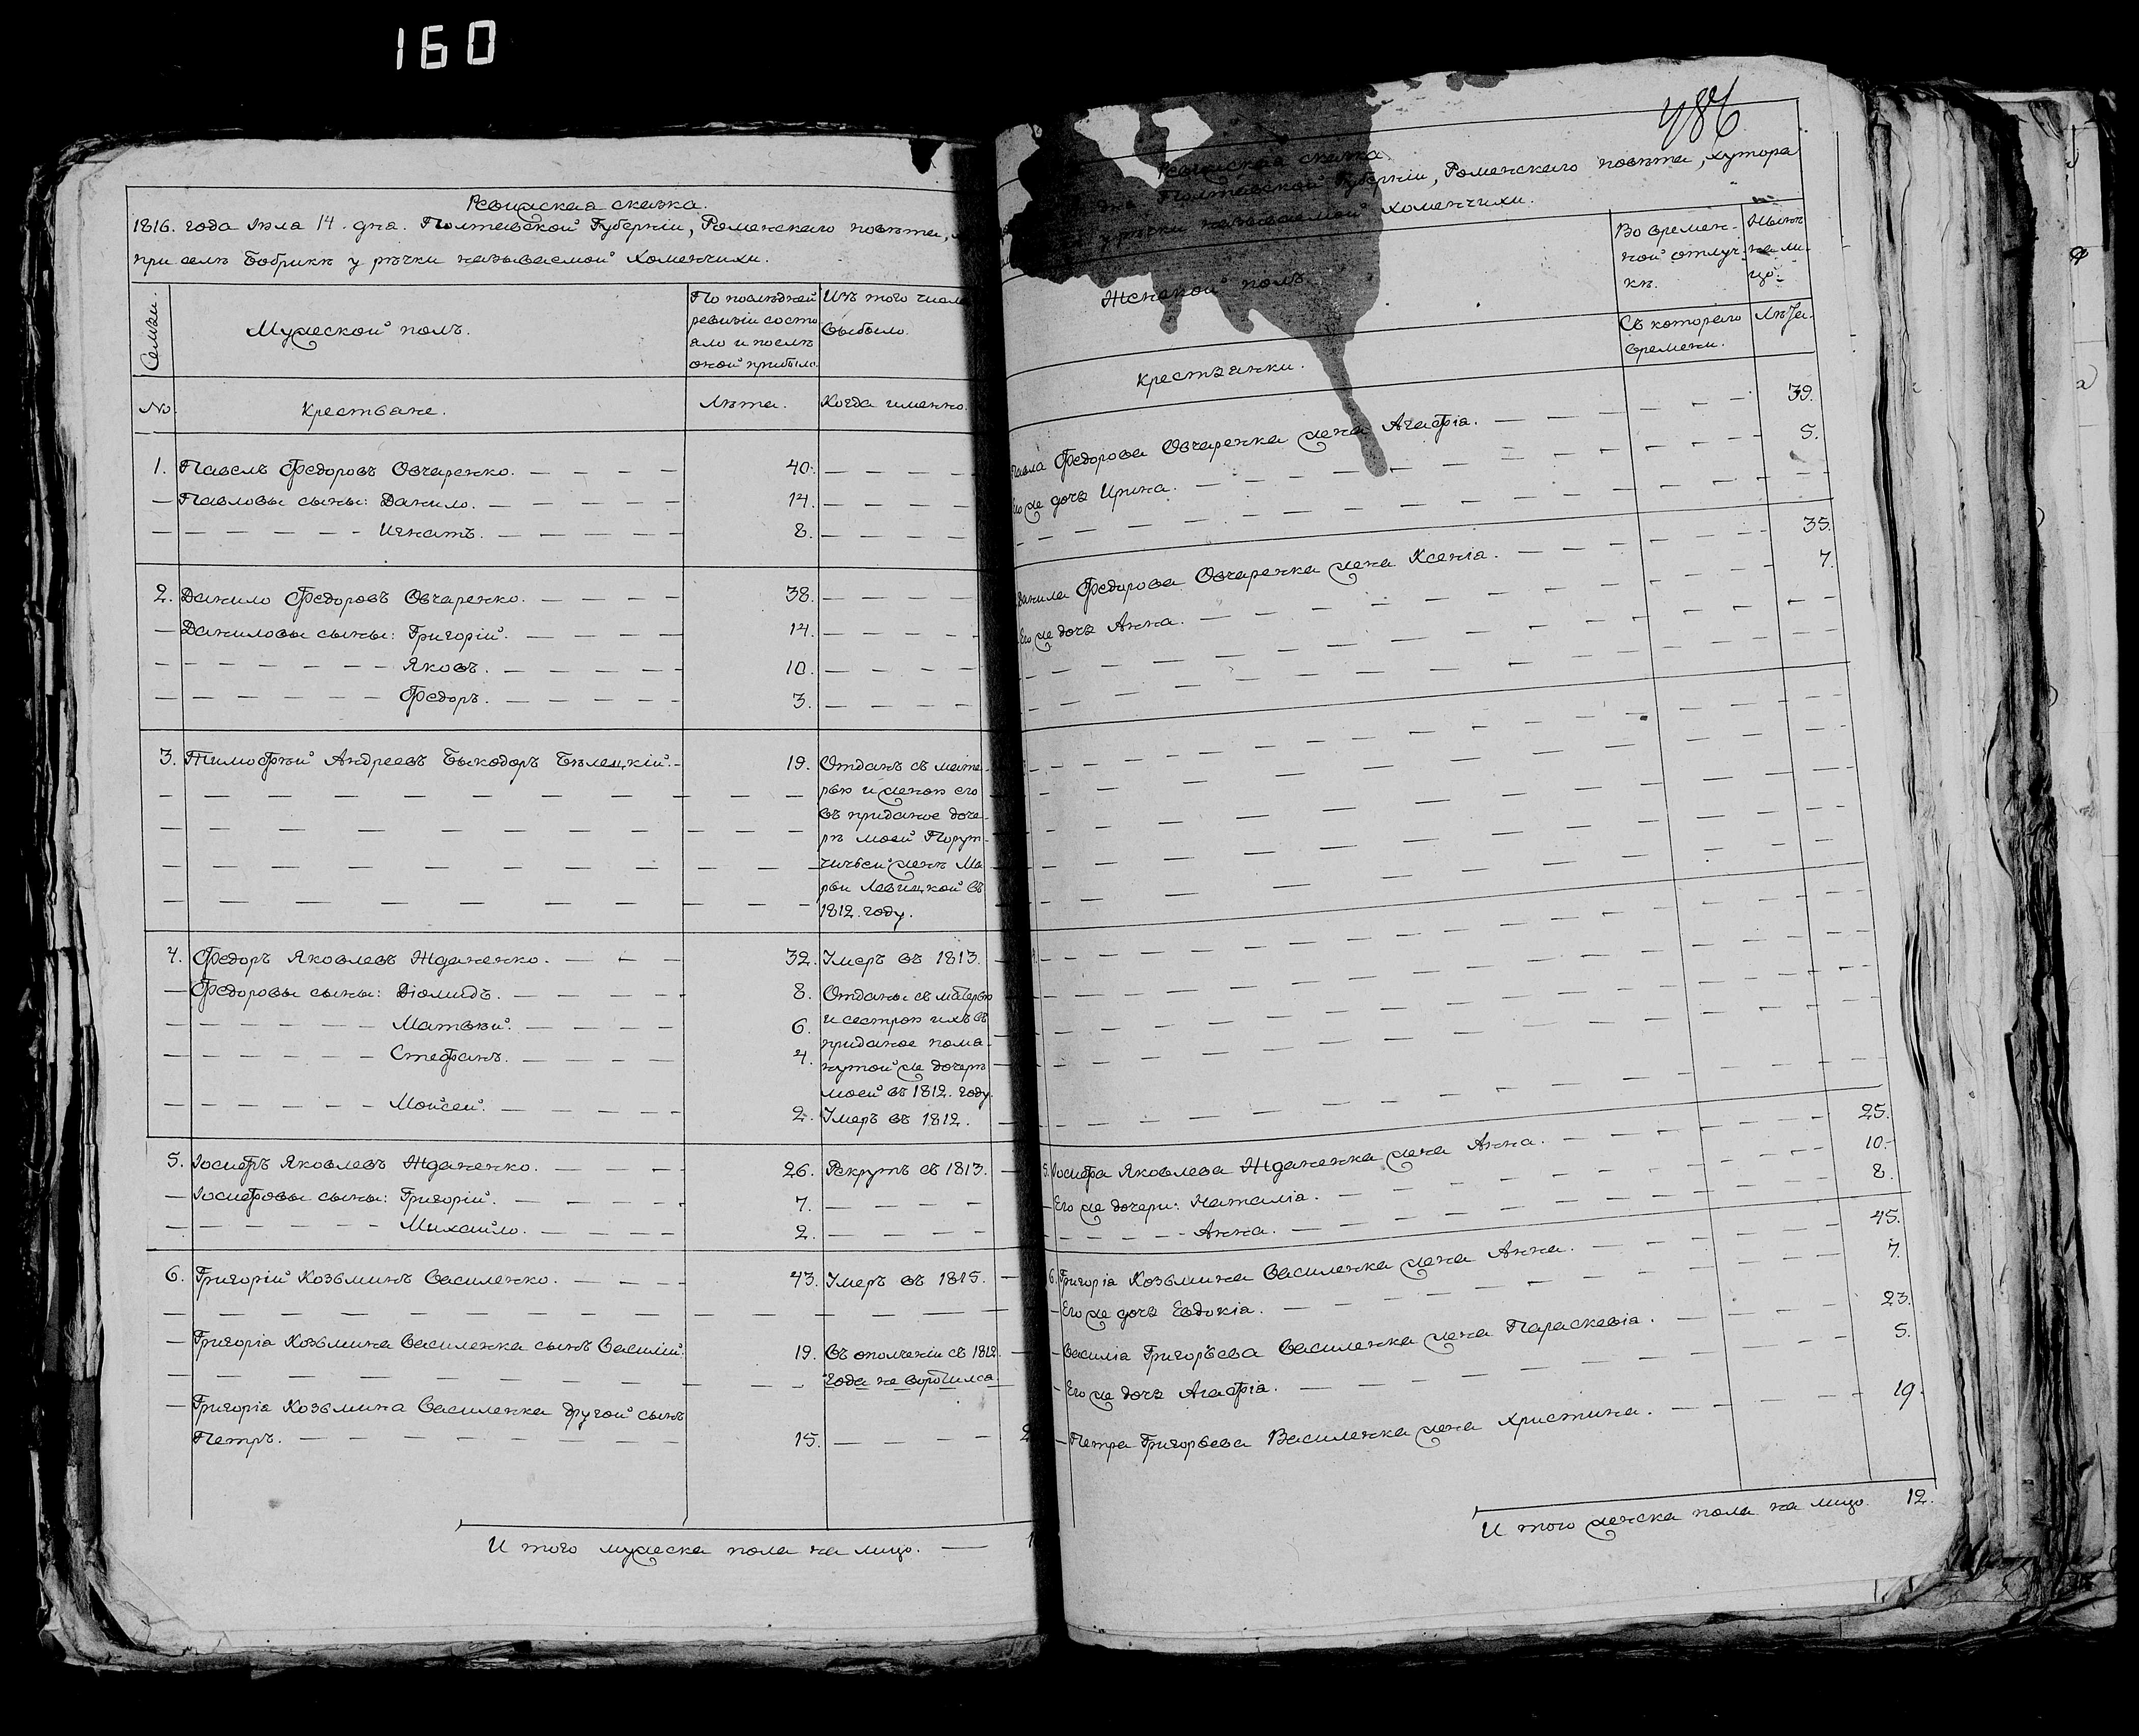 160
Ревизская сказка.
1816. года Іюла 14. дна. Полтавской Губерніи, Роменского повѣта,
при селѣ Бобрикѣ у рѣчки называемой Хоменчихи.
Семьи.
Мужеской полъ.
По послѣдней
ревизіи состо
яло и послѣ
оной прибыло.
Изъ того числа
выбыло.
№.
Крестьане.
Лѣта.
Когда именно.
1. Павелъ Федоровъ Овчаренко. — — — — 40. — — — —
— Павловы сыны: Данило. — — — — 14. — — — —
— — — — — — Игнатъ. — — — — — 8. — — — —
2. Данило Федоровъ Овчаренко. — — — — 38. — — — —
— Даниловы сыны: Григорій. — — — — 14. — — — —
— — — — — — — Яковъ. — — — — — 10. — — — —
— — — — — — — Федоръ. — — — — — 3. — — — —
3. Тимофѣй Андреевъ Быкодоръ Бѣлецкій. — 19. Отданъ съ мате-
рью и женою его
въ приданое доче-
рѣ моей Порут-
чичьей женѣ Ма
рьи Левицкой въ
1812. году.
4. Федоръ Яковлевъ Жданенко. — — — 32. Умеръ въ 1813. —
— Федоровы сыны: Діомидъ. — — — — 8. Отданы съ матерью
— — — — — — Матвѣй. — — — — 6. и сестрою ихъ въ
приданое пома-
— — — — — — Стефанъ. — — — — 4. нутой же дочерѣ
моей въ 1812. году.
— — — — — — Мойсей. — — — — 2. Умеръ въ 1812. —
5. Іосифъ Яковлевъ Жданенко. — — — — 26. Рекрутъ съ 1813. —
— Іосифовы сыны: Григорій. — — — — 7. — — — —
— — — — — — Михайло. — — — — 2. — — — —
6. Григорій Козьминъ Василенко. — — — 43. Умеръ въ 1815. —
— Григоріа Козьмина Василенка сынъ Василій. 19. Въ ополченіи съ 1812.
года не воротилса
— Григоріа Козьмина Василенка другой сынъ
Петръ. — — — — — — — — 15. — — — —
И того мужеска пола на лицо. —
486
Ревизская сказка.
Полтавской Губерніи, Роменского повѣта, хутора
у рѣчки называемой Хоменчихи.
Женской полъ.
Во времен-
ной отлуч-
кѣ.
Нынѣ
на ли-
цо.
Крестьанки.
Съ которого
времени.
Лѣта.
Павла Федорова Овчаренка жена Агафіа. — — — — 39.
Его же дочь Ирина. — — — — 5.
Данила Федорова Овчаренка жена Ксеніа. — — — — 35.
Его же дочь Анна. — — — — 7.
5. Іосифа Яковлева Жданенка жена Анна. — — — — 25.
— Его же дочери: Наталіа. — — — — 10.
— — — — — — Анна. — — — — 8.
6. Григоріа Козьмина Василенка жена Анна. — — — — 45.
— Его же дочь Евдокіа. — — — — 7.
— Василіа Григорьева Василенка жена Параскевіа. — — — — 23.
— Его же дочь Агафіа. — — — — 5.
— Петра Григорьева Василенка жена Христина. — — — — 19.
И того женска пола на лицо. 12.